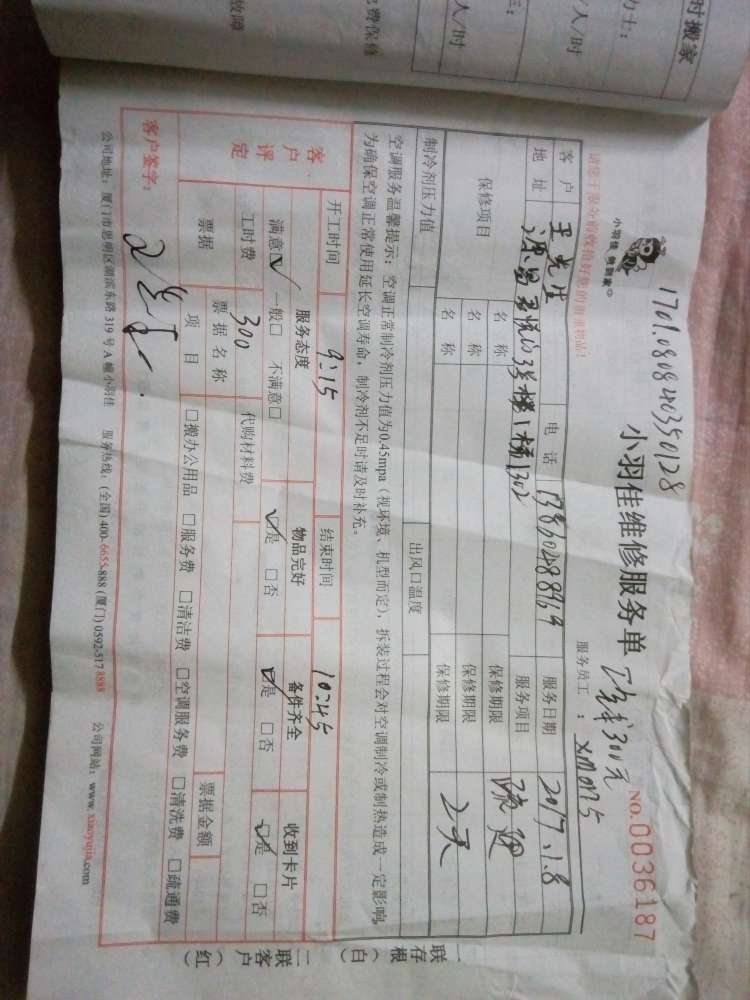 时搬家
力士：
/人/时
三：
人/时
费保修
故障
1701.080840350128
小羽佳 佣到家
小羽佳维修服务单
工全300元
NO.0036187
请您于服务前收拾好您的贵重物品！
服务员工：XM0175
客户 王先生 电话 13860488969 服务日期 2017.1.8
地址 3号楼1梯1302 服务项目 疏通
保修项目 名称 保修期限 2天
名称 保修期限
名称 保修期限
制冷剂压力值 出风口温度
空调服务温馨提示：空调正常制冷剂压力值为0.45mpa（视环境、机型而定），拆装过程会对空调制冷或制热造成一定影响，
为确保空调正常使用延长空调寿命，制冷剂不足时请及时补充。
开工时间 9:15 结束时间 10:45
客户评定
服务态度 物品完好 备件齐全 收到卡片
满意☑ 一般□ 不满意□ ☑是 □否 ☑是 □否 ☑是 □否
工时费 300 代购材料费
票据 票据名称 票据金额
项目 □搬办公用品 □服务费 □清洁费 □空调服务费 □清洗费 □疏通费
客户签字：
公司地址：厦门市思明区湖滨东路319号A幢小羽佳 服务热线：(全国) 400-6655-888 (厦门) 0592-517 8888 公司网站：www.xiaoyujia.com
一联存根（白）
二联客户（红）